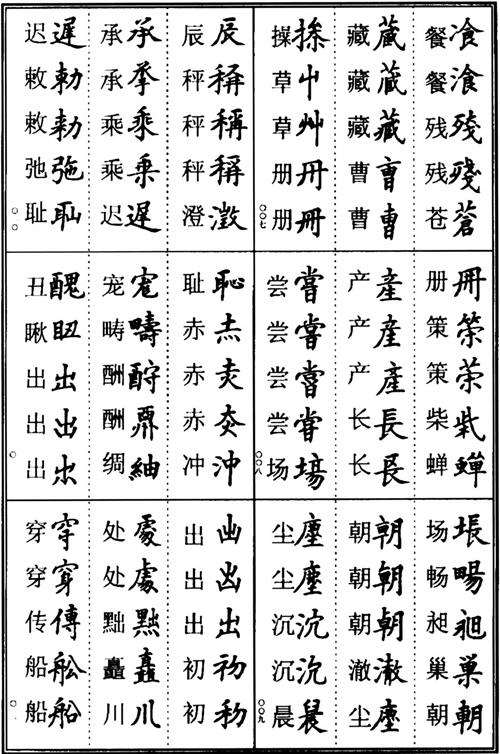 餐飡餐湌残残残殘苍蒼
藏蔵藏蔵藏藏曹曺曹曹
操掾草屮草艸册冊册冊
〇〇七
辰辰秤稱秤稱秤稱澄澂
承承承承乘乗乘乗迟遲
迟遲敕勅敕勑弛弛耻耻
册冊策策策柴柴蝉蟬
产産产産产產长長长長
尝嘗尝甞尝嘗尝甞场塲
〇〇八
耻恥赤赤赤赤赤冲沖
宠寵畴疇酬酧酬绸紬
丑醜瞅出出出出出出
场塲畅暢昶昶巢巢朝朝
朝朝朝朝朝朝澈澈尘塵
尘塵尘塵沉沈沉沉晨晨
〇〇九
出出出出出出初初初初
处處处處黜黜矗矗川川
穿穿穿穿传傳船舩船船